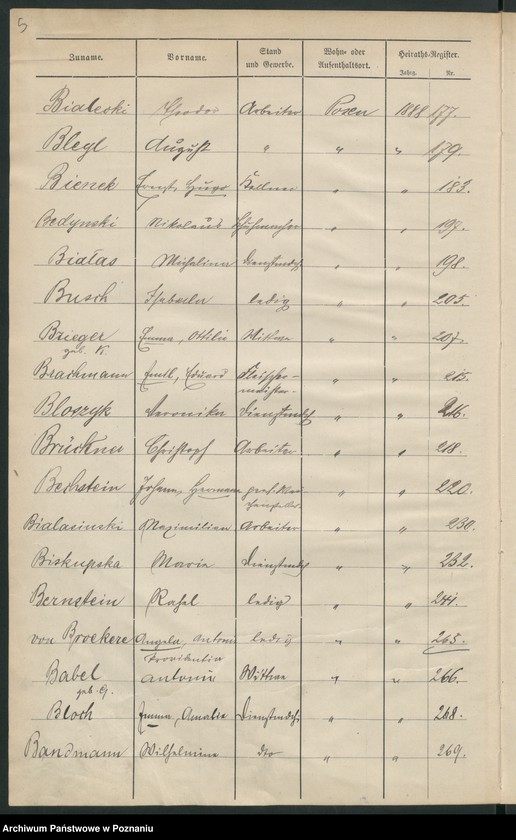 5
Zuname. Vorname. Stand und Gewerbe. Wohn- oder Aufenthaltsort. Heiraths-Register.
Jahrg. Nr.
Bialecki Theodor Arbeiter Posen 1888 177.
Bleyl August " " " 179.
Bienek Ernst, Hugo Kellner " " 183.
Bedynski Nikolaus Schuhmacher " " 197.
Białas Michalina Dienstmdch " " 198.
Busch Isabella ledig " " 205.
Brieger Emma, Ottilie Wittwe " " 207.
geb. K.
Brachmann Emil, Eduard Fleischer- " " 215.
meister.
Bloszyk Veronika Dienstmdch " " 216.
Brückner Christoph Arbeiter " " 218.
Bechstein Johann, Hermann " " 220.
Bialasinski Maximilian Arbeiter " " 230.
Biskupska Marie Dienstmdch " " 232.
Bernstein Rahel ledig " " 241.
von Broekere Angela, Antonie ledig " " 265.
Babel Antonie Wittwe " " 266.
geb. G.
Bloch Emma, Amalie Dienstmdch " " 268.
Bandmann Wilhelmine dto " " 269.
Archiwum Państwowe w Poznaniu